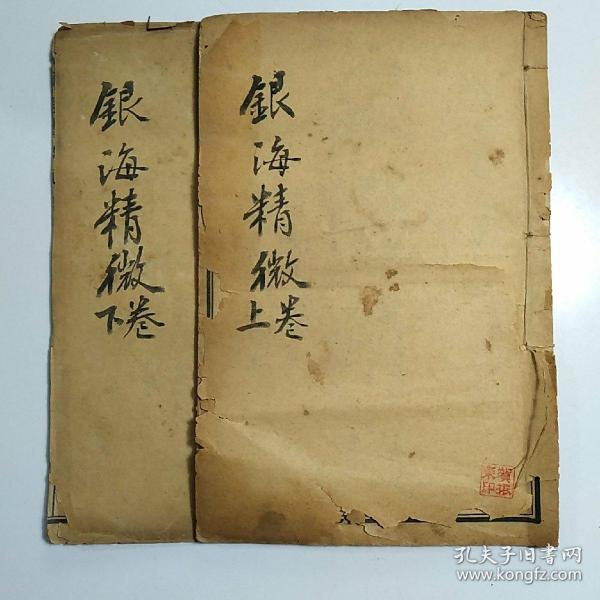 銀海精微
上卷
銀海精微
下卷
孔夫子旧书网
www.kongfz.com